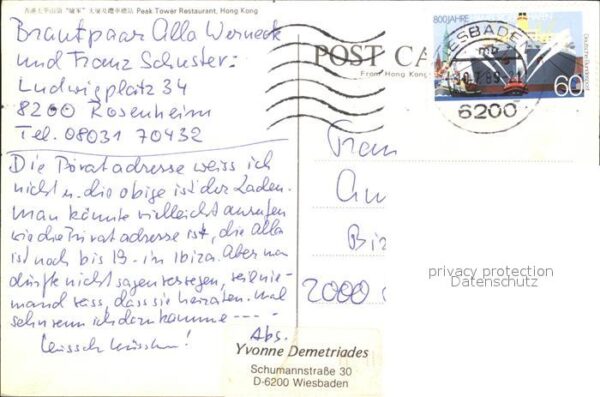 香港太平山頂“爐峯”大廈及纜車總站 Peak Tower Restaurant, Hong Kong
Brautpaar Alla Werneck
und Franz Schuster:
Ludwigplatz 34
8200 Rosenheim
Tel. 08031 70432
Die Privatadresse weiss ich
nicht u. die obige ist der Laden.
Man könnte vielleicht anrufen
wie die Privatadresse ist, die Alla
ist noch bis 19. in Ibiza. Aber man
dürfte nicht sagen weswegen, weil nie-
mand weiss, dass sie heiraten. Mal
sehn wenn ich dazu komme ----
Küssch Küsschen!
POST CA
From Hong Kong
800 JAHRE
Deutsche Bundespost
60
WIESBADEN
mb
6200
Fran
Bir
2000
privacy protection
Datenschutz
Abs.
Yvonne Demetriades
Schumannstraße 30
D-6200 Wiesbaden